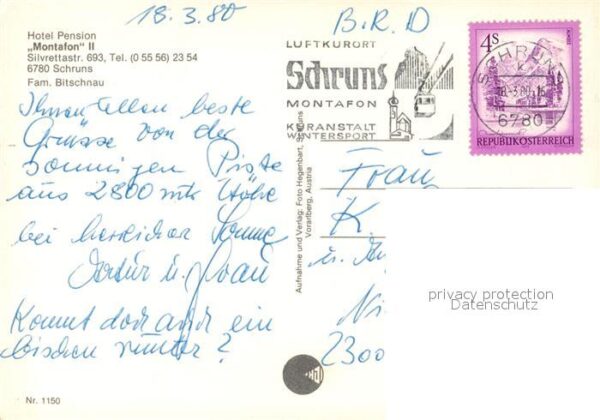 18.3.80
B.R.D
Hotel Pension
„Montafon" II
Silvrettastr. 693, Tel. (0 55 56) 23 54
6780 Schruns
Fam. Bitschnau
LUFTKURORT
Schruns
MONTAFON
KURANSTALT
WINTERSPORT
4S
SCHRUNS
18.-3.80.-16
6780
REPUBLIK ÖSTERREICH
Ihnen allen beste
Grüsse von der
sonnigen Piste
aus 2800 mtr Höhe
bei herrlicher Sonne
u. Frau
Kommt doch auch ein
bischen runter?
Aufnahme und Verlag: Foto Hegenbart, Schruns
Vorarlberg, Austria
Frau
K.
u.
2300
privacy protection
Datenschutz
Nr. 1150